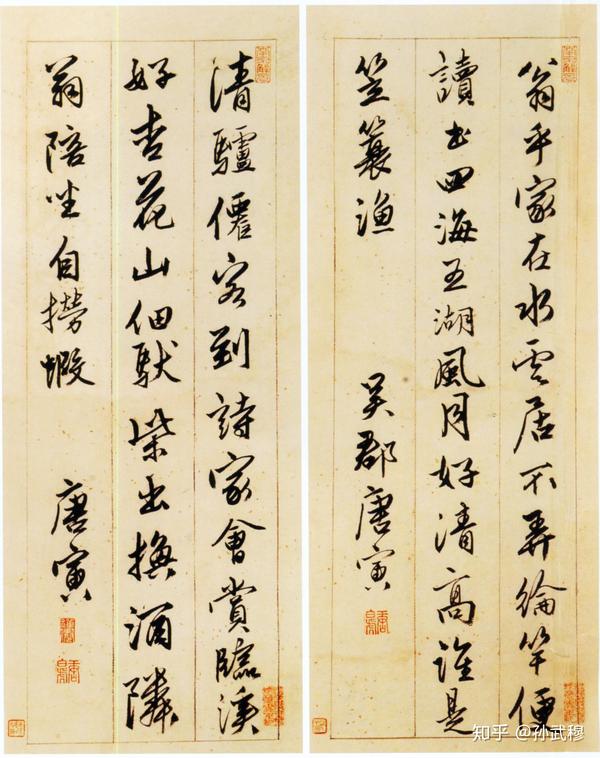 翁乎家在水雲居不弄綸竿便
讀書四海五湖風月好清高誰是
笠簑漁
吳郡唐寅
清驢僊客到詩家會賞臨溪
好杏花山佃馱柴出換酒隣
翁陪坐自撈蝦
唐寅
知乎 @孙武穆